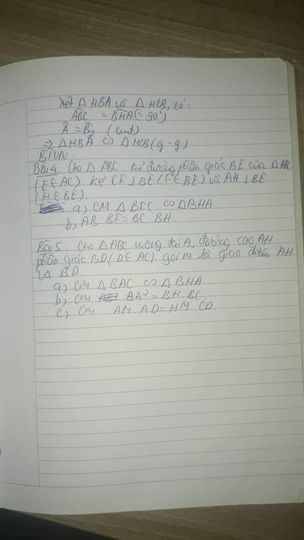 Xét △ HBA và △ HCB, có:
ABC = BHA (= 90°)
A = B₁ (cmt)
⇒ △ HBA ∽ △ HCB (g - g)
BTVN:
Bài 4 Cho △ ABC kẻ đường phân giác BE của △ ABC
(E ∈ AC) Kẻ CF ⊥ BE (F ∈ BE) và AH ⊥ BE
(H ∈ BE).
a, CM △ BFC ∽ △ BHA
b, AB. BF = BC. BH
Bài 5 Cho △ ABC vuông tại A, đường cao AH
phân giác BD (D ∈ AC). gọi M là giao điểm AH
và BD
a, CM △ BAC ∽ △ BHA
b, CM AB² = BH. BC
c, CM AB. AD = HM. CD